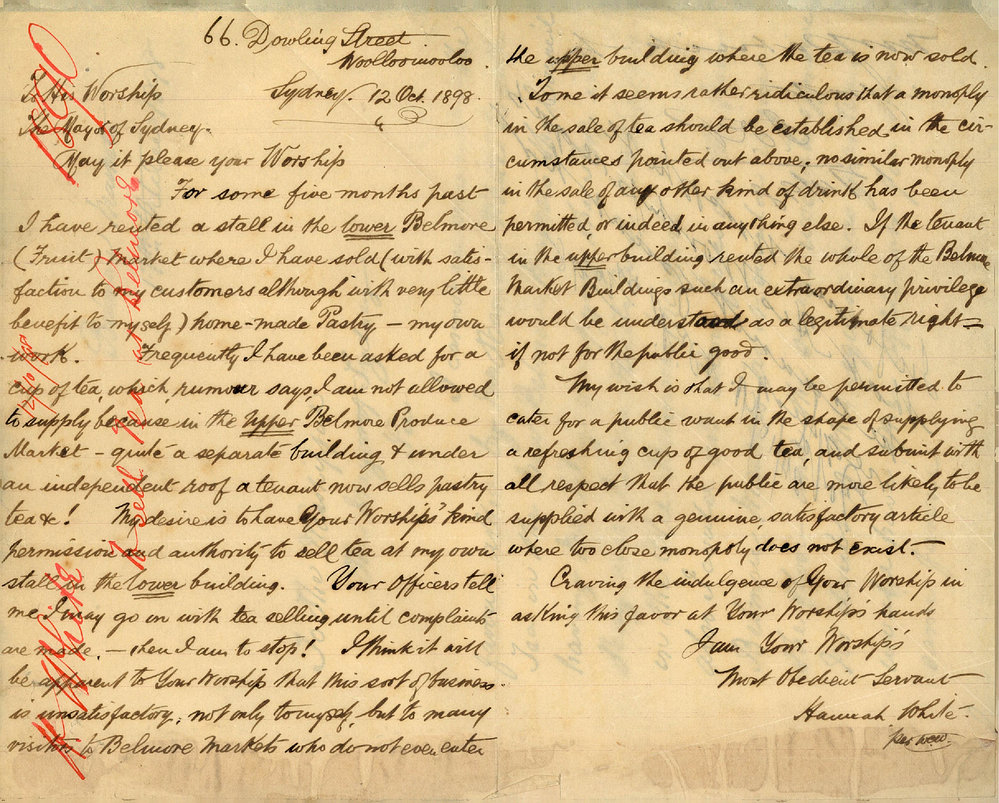 66. Dowling Street.
Woolloomooloo.
To His Worship
Sydney. 12 Oct. 1898.
The Mayor of Sydney.
May it please your Worship
For some five months past
I have rented a stall in the lower Belmore
(Fruit) Market where I have sold (with satis-
faction to my customers although with very little
benefit to myself) home-made Pastry – my own
work. Frequently I have been asked for a
cup of tea, which rumour says I am not allowed
to supply because in the upper Belmore Produce
Market – quite a separate building & under
an independent roof a tenant now sells pastry
tea &c! My desire is to have Your Worships' kind
permission and authority to sell tea at my own
stall in the lower building. Your Officers tell
me I may go on with tea selling until complaints
are made. – then I am to stop! I think it will
be apparent to Your Worship that this sort of business
is unsatisfactory, not only to myself, but to many
visitors to Belmore Markets who do not even enter
the upper building where the tea is now sold.
To me it seems rather ridiculous that a monoply
in the sale of tea should be established in the cir-
cumstances pointed out above; no similar monoply
in the sale of any other kind of drink has been
permitted, or indeed in anything else. If the tenant
in the upper building rented the whole of the Belmore
Market Buildings such an extraordinary privilege
would be understood as a legitimate right –
if not for the public good.
My wish is that I may be permitted to
cater for a public want in the shape of supplying
a refreshing cup of good tea, and submit with
all respect that the public are more likely to be
supplied with a genuine, satisfactory article
where too close monopoly does not exist.
Craving the indulgence of Your Worship in
asking this favor at Your Worship's hands
I am Your Worship's
Most Obedient Servant
Hannah White.
per
H. White to sell Tea at Belmore